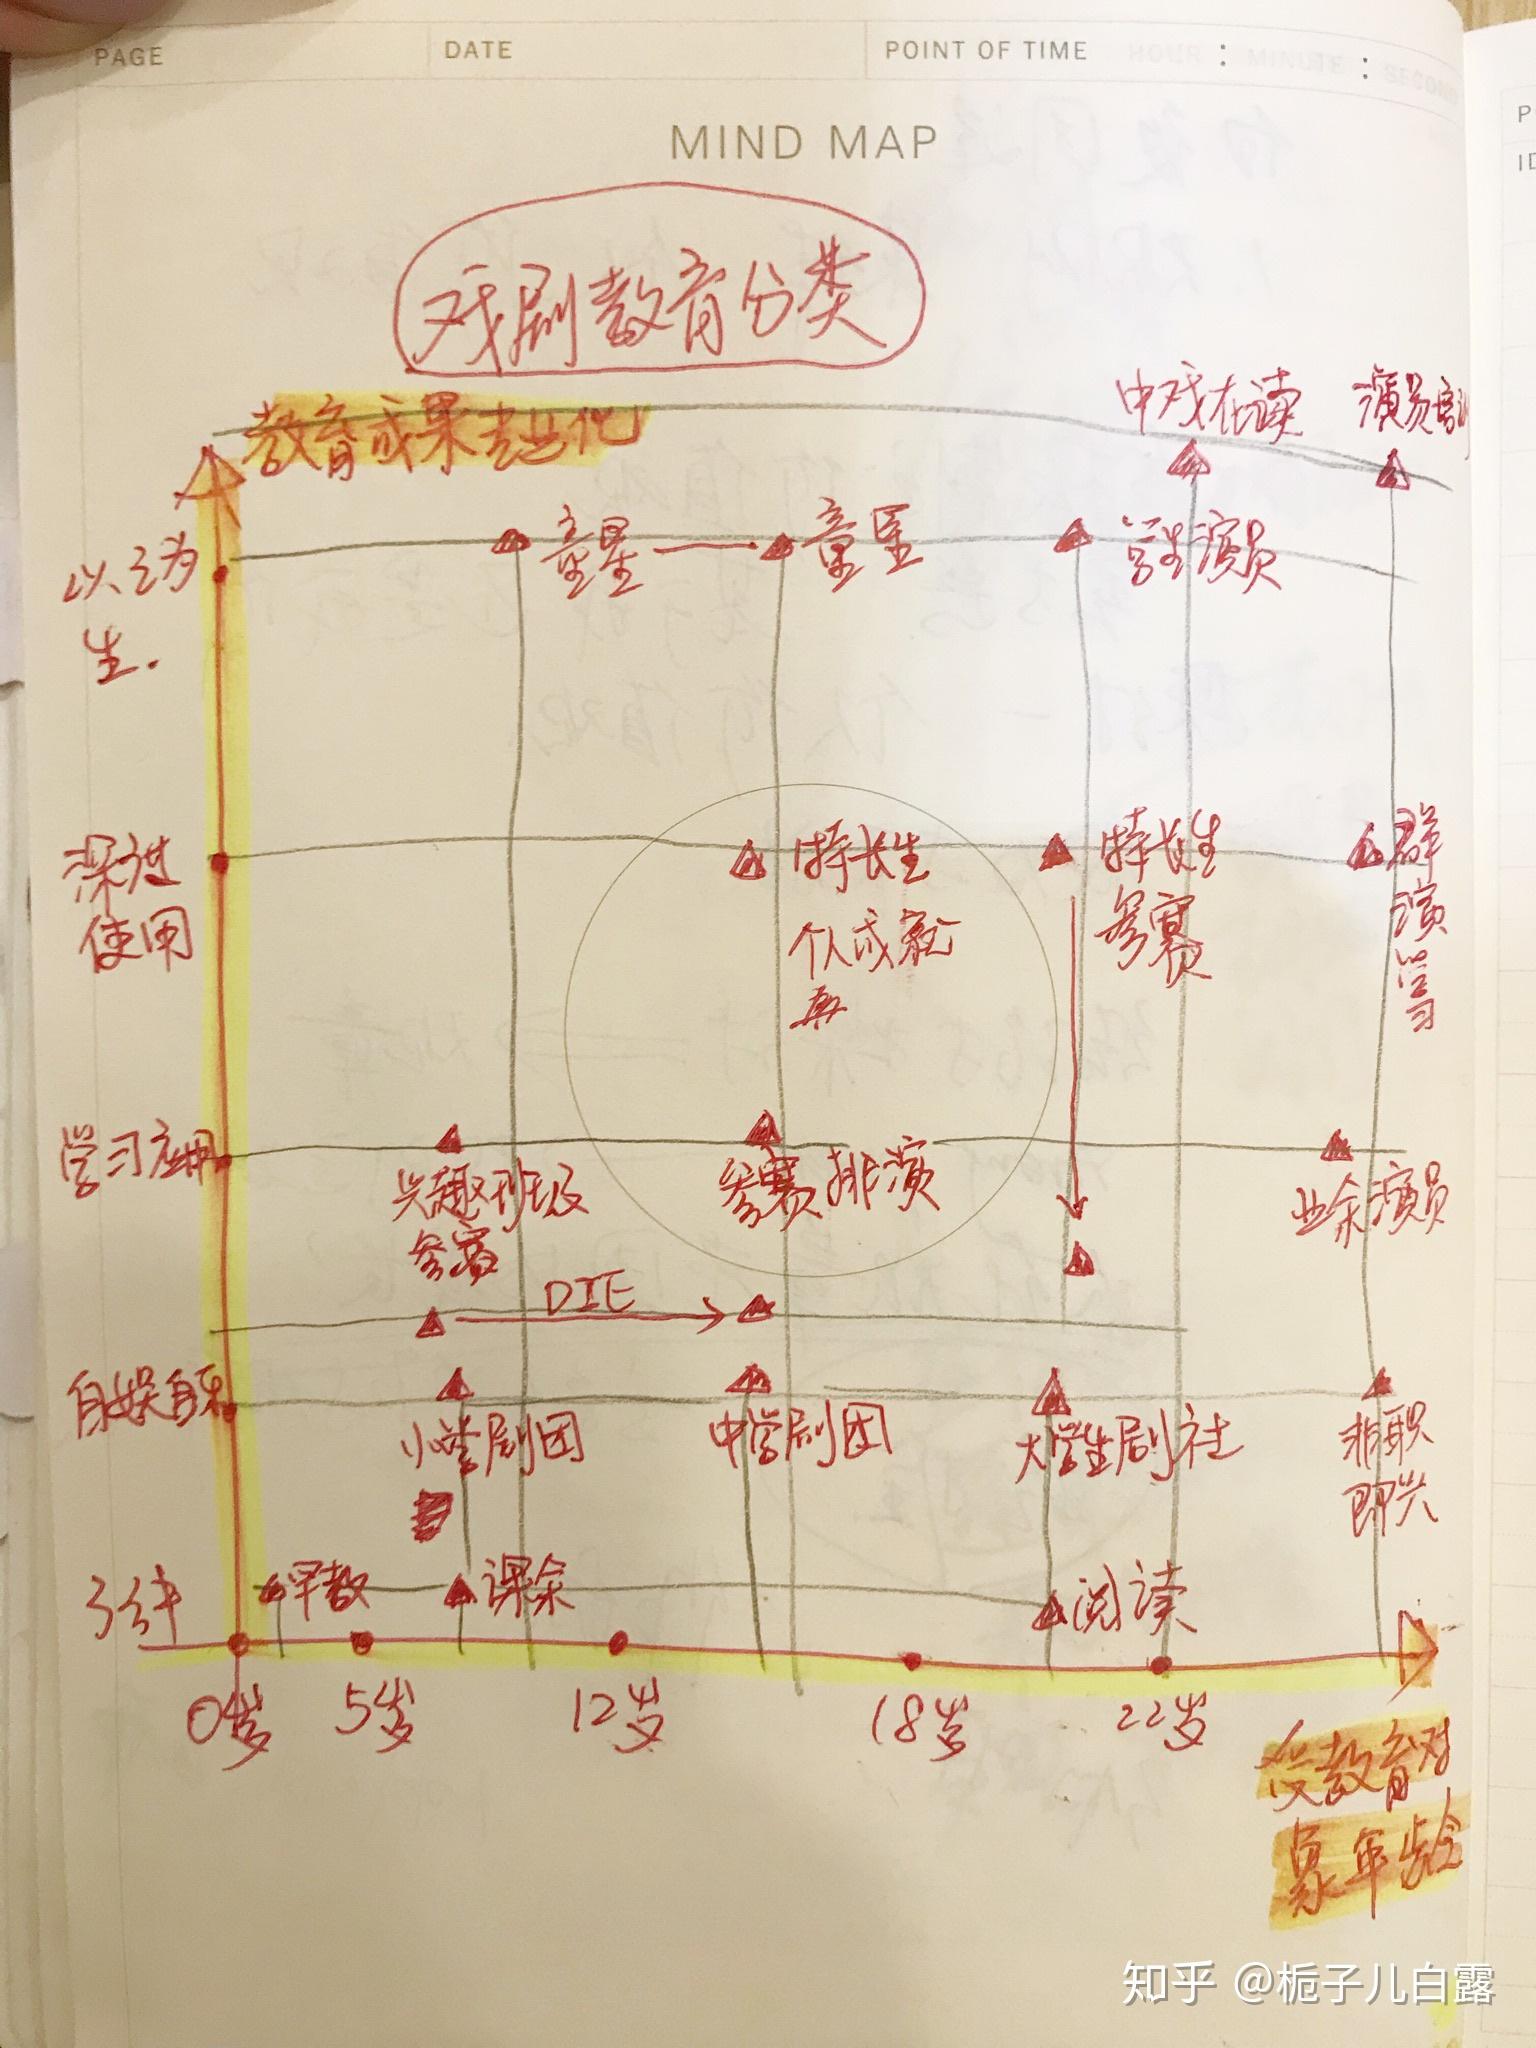 PAGE
DATE
POINT OF TIME HOUR : MINUTE : SECOND
MIND MAP
戏剧教育分类
教育成果专业化
中戏在读
演员培训
以之为
生.
童星
童星
学生演员
深造
使用
特长生
个人成就
特长生
参赛
群
演
学
习
学习应用
兴趣班级
参赛
参赛排演
业余演员
DIE
自娱自乐
小学剧团
中学剧团
大学生剧社
非职
即兴
了解
早教
课余
阅读
0岁
5岁
12岁
18岁
22岁
受教育对
象年龄
知乎 @栀子儿白露